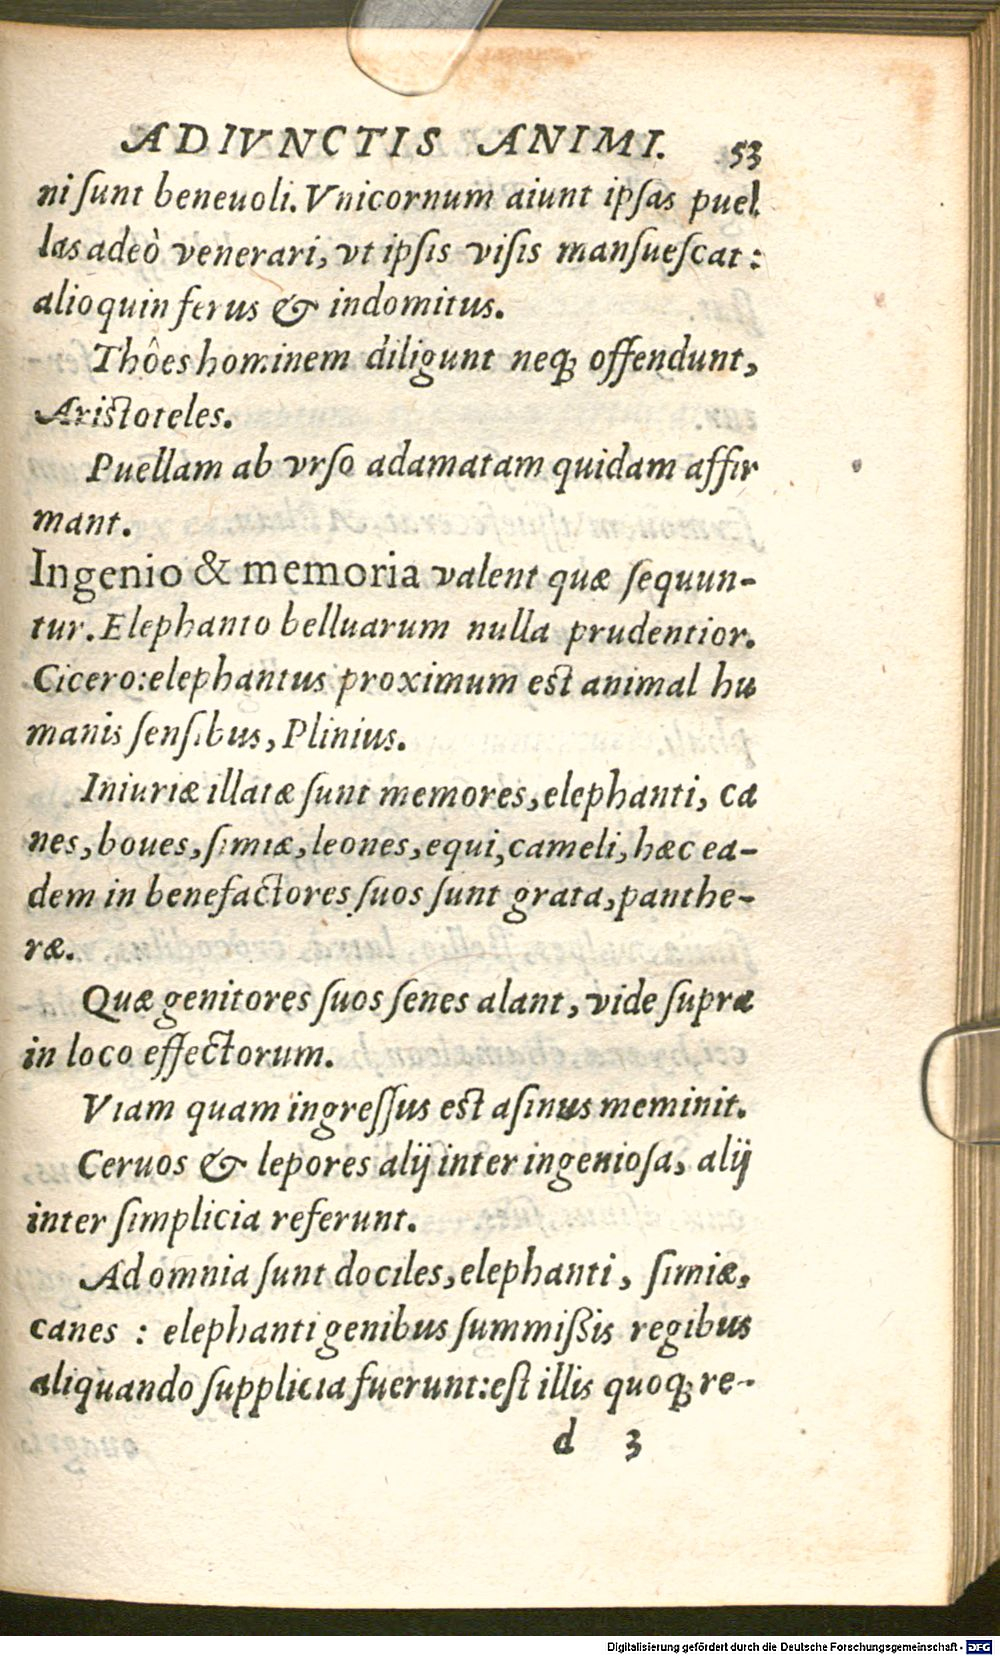 ADIVNCTIS ANIMI. 53
ni ſunt beneuoli. Vnicornum aiunt ipſas puel
las adeò venerari, vt ipſis viſis manſueſcat:
alioquin ferus & indomitus.
Thôes hominem diligunt neq; offendunt,
Ariſtoteles.
Puellam ab vrſo adamatam quidam affir
mant.
Ingenio & memoria valent quæ ſequun-
tur. Elephanto belluarum nulla prudentior.
Cicero: elephantus proximum eſt animal hu
manis ſenſibus, Plinius.
Iniuriæ illatæ ſunt memores, elephanti, ca
nes, boues, ſimiæ, leones, equi, cameli, hæc ea-
dem in benefactores ſuos ſunt grata, panthe-
ræ.
Quæ genitores ſuos ſenes alant, vide ſupra
in loco effectorum.
Viam quam ingreſſus eſt aſinus meminit.
Ceruos & lepores alij inter ingenioſa, alij
inter ſimplicia referunt.
Ad omnia ſunt dociles, elephanti, ſimiæ,
canes : elephanti genibus ſummißis regibus
aliquando ſupplicia fuerunt: eſt illis quoq; re-
d 3
Digitalisierung gefördert durch die Deutsche Forschungsgemeinschaft - DFG